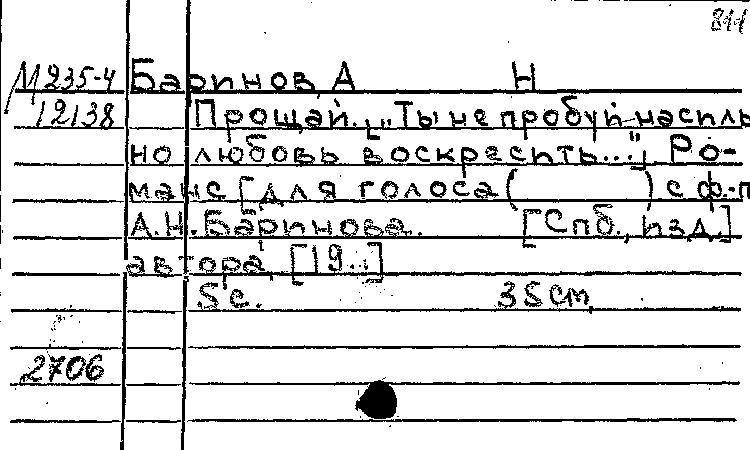 811
М 235-4 Баринов, А Н
12138 Прощай. [„Ты не пробуй насиль
но любовь воскресить..."] Ро-
манс [для голоса ( ) с ф.-п
А.Н. Баринова. [Спб., изд.]
автора, [19..]
5 с. 35 см.
2706